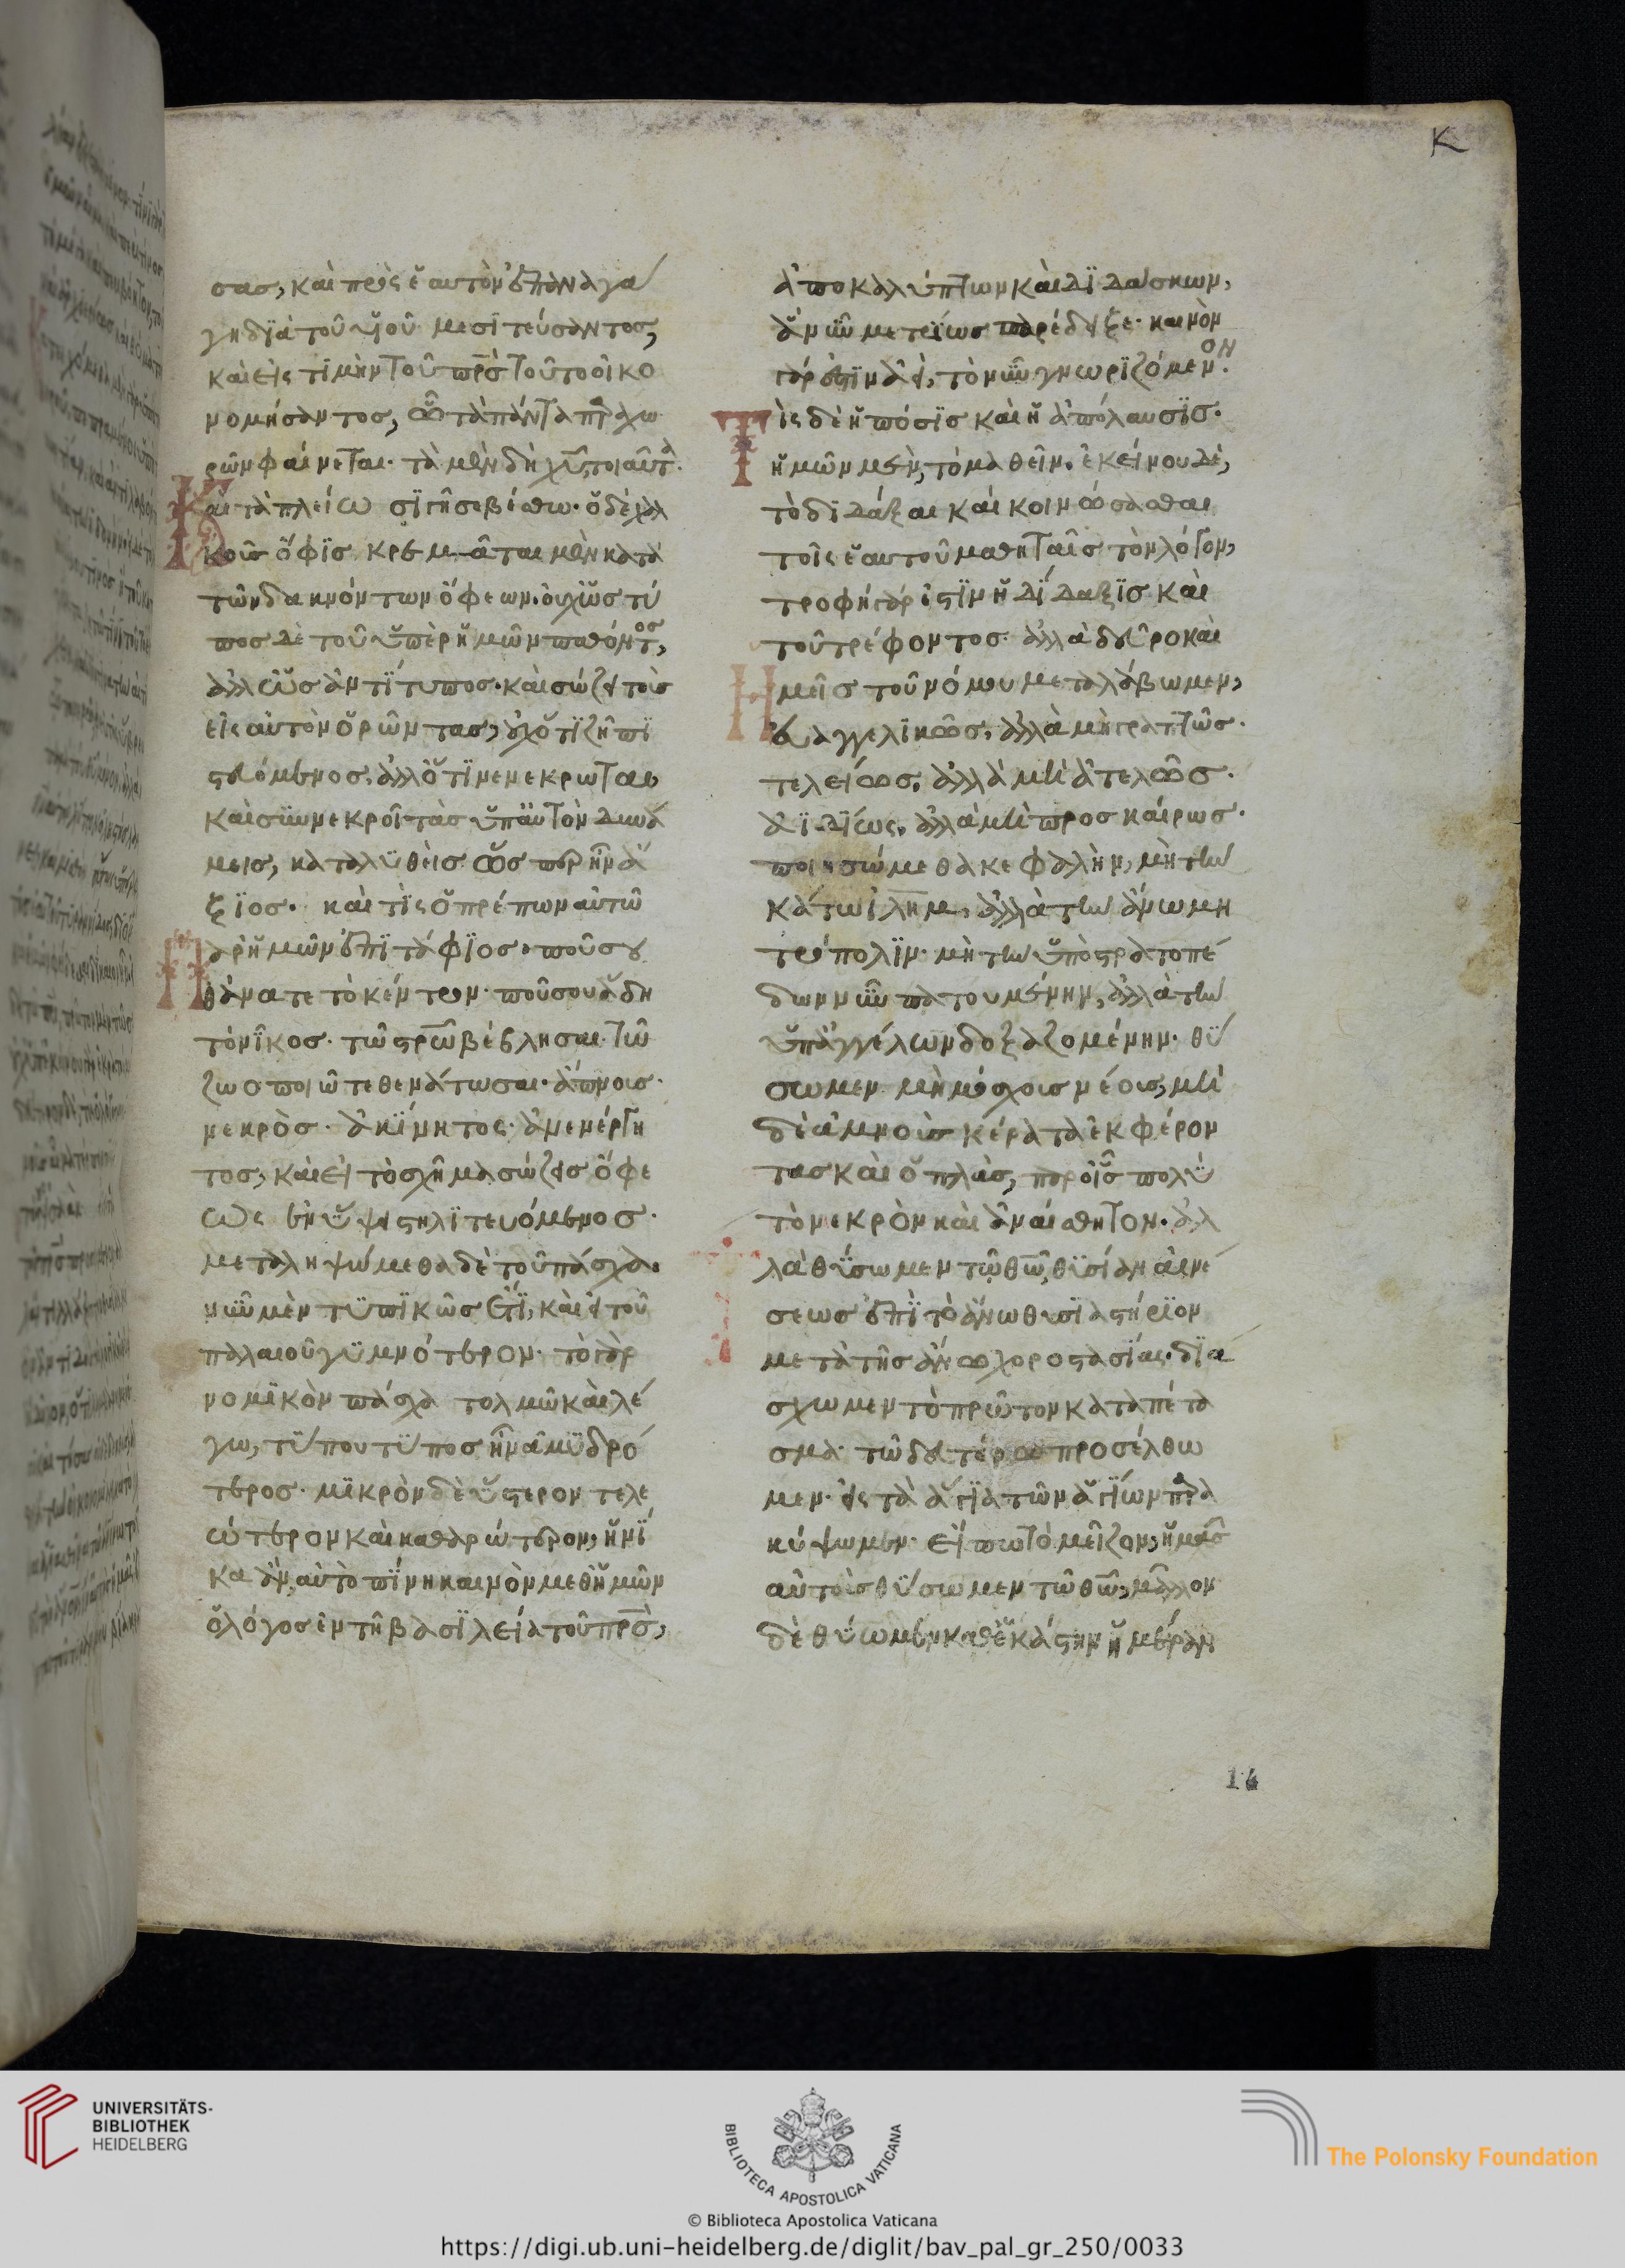 Κ
σας, καὶ πρὸς ἑαυτὸν ἐπαναγά
γῃ διὰ τοῦ υἱοῦ μεσιτεύσαντος,
καὶ εἰς τιμὴν τοῦ πρς τοῦτο οἰκο
νομήσαντος, οὗ τὰ πάντα παραχω
ρῶν φαίνεται. τὰ μὲν δὴ χυ, τοιαῦτα.
Καὶ τὰ πλείω σιγῇ σεβέσθω. ὁ δὲ χαλ
κοῦς ὄφις κρεμᾶται μὲν κατὰ
τῶν δακνόντων ὄφεων. οὐχ ὡς τύ
πος δὲ τοῦ ὑπὲρ ἡμῶν παθόντος,
ἀλλ' ὡς ἀντίτυπος. καὶ σώζει τοὺς
εἰς αὐτὸν ὁρῶντας, οὐχ ὅτι ζῇ πι
στευόμενος, ἀλλ' ὅτι νενέκρωται,
καὶ συννεκροῖ τὰς ὑπ' αὐτὸν δυνά
μεις, καταλυθεὶς ὥσπερ ἦν ἄ
ξιος. καὶ τίς ὁ πρέπων αὐτῷ
Παρ' ἡμῶν ἐπιτάφιος. ποῦ σου
θάνατε τὸ κέντρον. ποῦ σου ἅδη
τὸ νῖκος. τῷ στρω βέβλησαι. τῷ
ζωοποιῷ τεθανάτωσαι. ἄπνους.
νεκρὸς. ἀκίνητος. ἀνενέργη
τος, καὶ εἰ τὸ σχῆμα σώζεις ὄφε
ως ἐν ὕψει στηλιτευόμενος.
μεταληψώμεθα δὲ τοῦ πάσχα.
νῦν μὲν τυπικῶς ἔτι, καὶ εἰ τοῦ
παλαιοῦ γυμνότερον. τὸ γὰρ
νομικὸν πάσχα τολμῶ καὶ λέ
γω, τύπου τύπος ἦν ἀμυδρό
τερος. μικρὸν δὲ ὕστερον τελε
ώτερον καὶ καθαρώτερον, ἡνί
κα ἂν αὐτὸ πίνῃ καινὸν μεθ' ἡμῶν
ὁ λόγος ἐν τῇ βασιλείᾳ τοῦ πρς,
ἀποκαλύπτων καὶ διδάσκων,
ἃ νῦν μετρίως παρέδειξε. καινὸν
γάρ ἐστιν ἀεὶ, τὸ νῦν γνωριζόμενον.
Τίς δὲ ἡ πόσις καὶ ἡ ἀπόλαυσις.
ἡμῶν μὲν, τὸ μαθεῖν. ἐκείνου δὲ,
τὸ διδάξαι καὶ κοινώσασθαι
τοῖς ἑαυτοῦ μαθηταῖς τὸν λόγον,
τροφὴ γάρ ἐστιν ἡ δίδαξις καὶ
τοῦ τρέφοντος. ἀλλὰ δεῦρο καὶ
Ἡμεῖς τοῦ νόμου μεταλάβωμεν,
εὐαγγελικῶς, ἀλλὰ μὴ γραπτῶς.
τελείως, ἀλλὰ μὴ ἀτελῶς.
ἀϊδίως, ἀλλὰ μὴ προσκαίρως.
ποιησώμεθα κεφαλὴν, μὴ τὴν
κάτω ιλημ, ἀλλὰ τὴν ἄνω μη
τρόπολιν. μὴ τὴν ὑπὸ στρατοπέ
δων νῦν πατουμένην, ἀλλὰ τὴν
ὑπ' ἀγγέλων δοξαζομένην. θύ
σωμεν μὴ μόσχους νέους, μη
δὲ ἀμνοὺς κέρατα ἐκφέρον
τας καὶ ὁπλὰς, παρ' οἷς πολὺ
τὸ νεκρὸν καὶ ἀναίσθητον. ἀλ
λὰ θύσωμεν τῷ θω, θυσίαν αἰνέ
σεως ἐπὶ τὸ ἄνω θυσιαστήριον
μετὰ τῆς ἄνω χοροστασίας. διά
σχωμεν τὸ πρῶτον καταπέτα
σμα. τῷ δευτέρῳ προσέλθω
μεν. εἰς τὰ ἅγια τῶν ἁγίων παρα
κύψωμεν. εἴπω τὸ μεῖζον, ἡμᾶς
αὐτοὺς θύσωμεν τῷ θω, μᾶλλον
δὲ θύωμεν καθ' ἑκάστην ἡμέραν
14
UNIVERSITÄTS-
BIBLIOTHEK
HEIDELBERG
BIBLIOTECA APOSTOLICA VATICANA
The Polonsky Foundation
© Biblioteca Apostolica Vaticana
https://digi.ub.uni-heidelberg.de/diglit/bav_pal_gr_250/0033